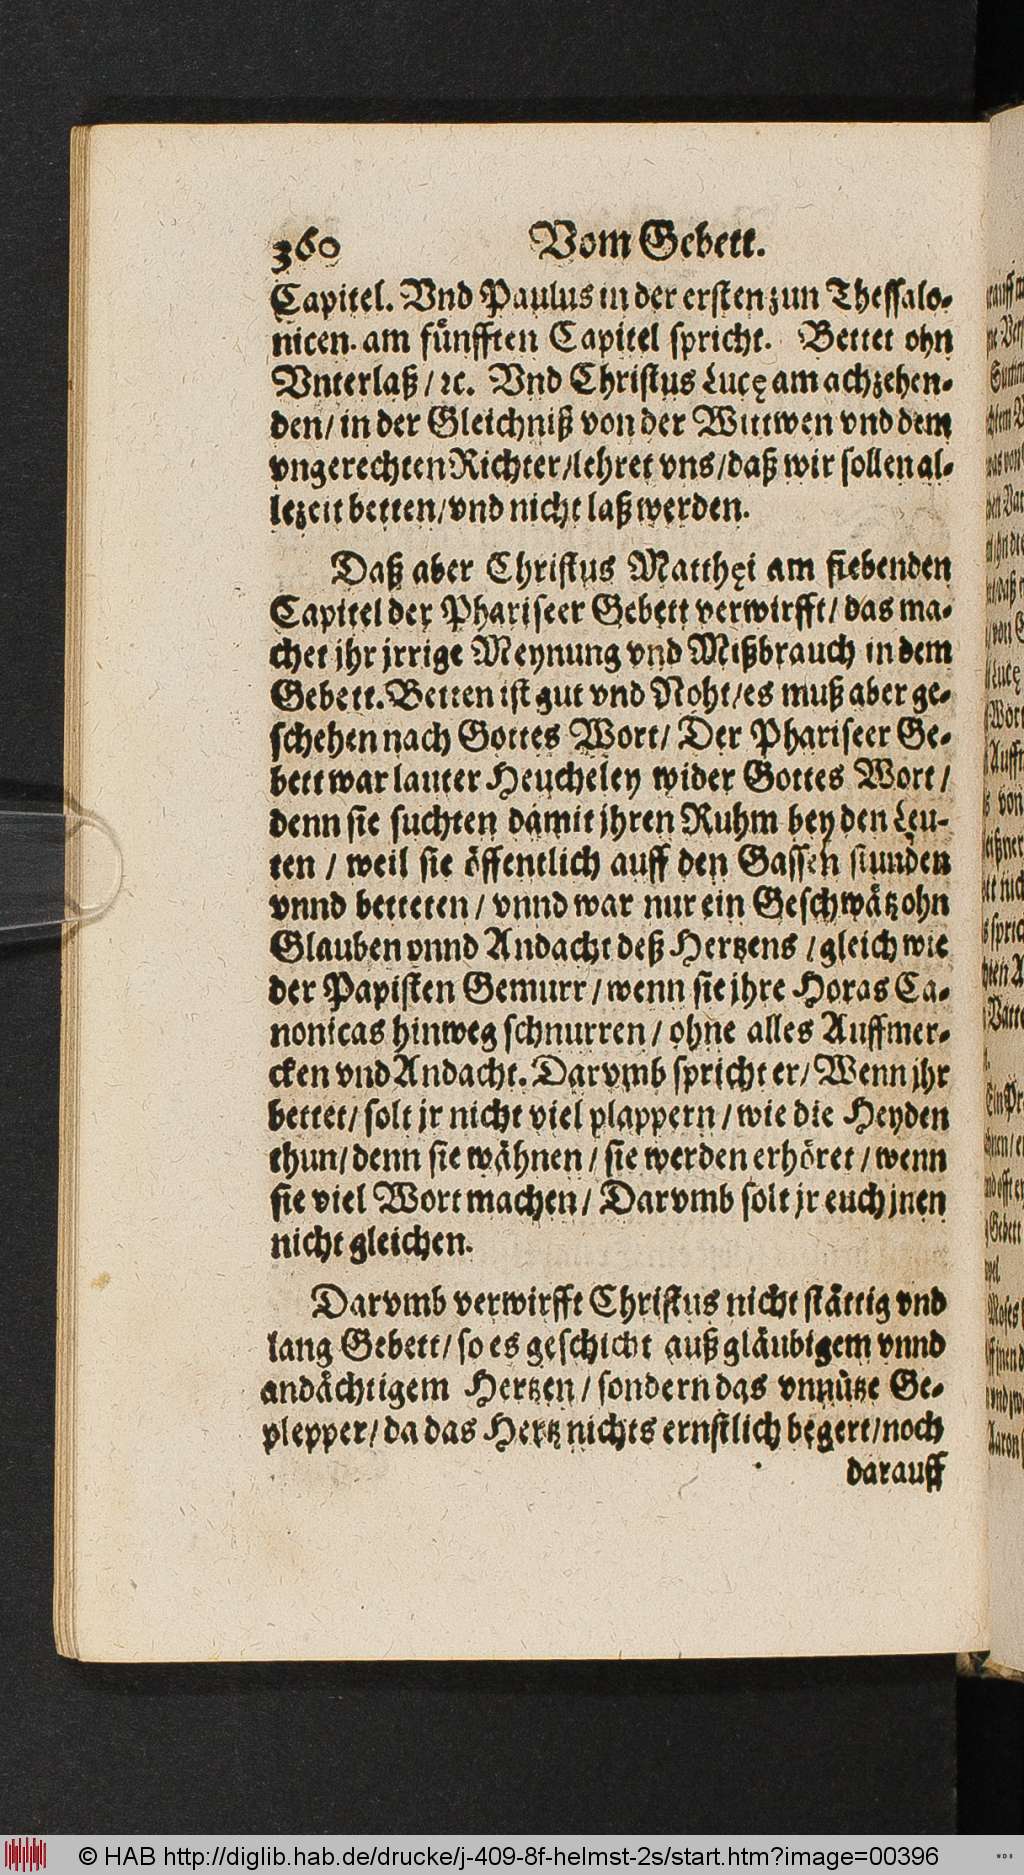 360 Vom Gebett.
Capitel. Vnd Paulus in der ersten zun Thessalo-
nicen. am fünfften Capitel spricht. Bettet ohn
Vnterlaß / ꝛc. Vnd Christus Lucę am achzehen-
den / in der Gleichniß von der Wittwen vnd dem
vngerechten Richter / lehret vns / daß wir sollen al-
lezeit betten / vnd nicht laß werden.
Daß aber Christus Matthęi am siebenden
Capitel der Phariseer Gebett verwirfft / das ma-
chet jhr jrrige Meynung vnd Mißbrauch in dem
Gebett. Betten ist gut vnd Noht / es muß aber ge-
schehen nach Gottes Wort / Der Phariseer Ge-
bett war lauter Heucheley wider Gottes Wort /
denn sie suchten damit jhren Ruhm bey den Leu-
ten / weil sie öffentlich auff den Gassen stunden
vnnd betteten / vnnd war nur ein Geschwätz ohn
Glauben vnnd Andacht deß Hertzens / gleich wie
der Papisten Gemurr / wenn sie jhre Horas Ca-
nonicas hinweg schnurren / ohne alles Auffmer-
cken vnd Andacht. Darvmb spricht er / Wenn jhr
bettet / solt jr nicht viel plappern / wie die Heyden
thun / denn sie wähnen / sie werden erhöret / wenn
sie viel Wort machen / Darvmb solt jr euch jnen
nicht gleichen.
Darvmb verwirfft Christus nicht stättig vnd
lang Gebett / so es geschicht auß gläubigem vnnd
andächtigem Hertzen / sondern das vnnütze Ge-
plepper / da das Hertz nichts ernstlich begert / noch
darauff
© HAB http://diglib.hab.de/drucke/j-409-8f-helmst-2s/start.htm?image=00396